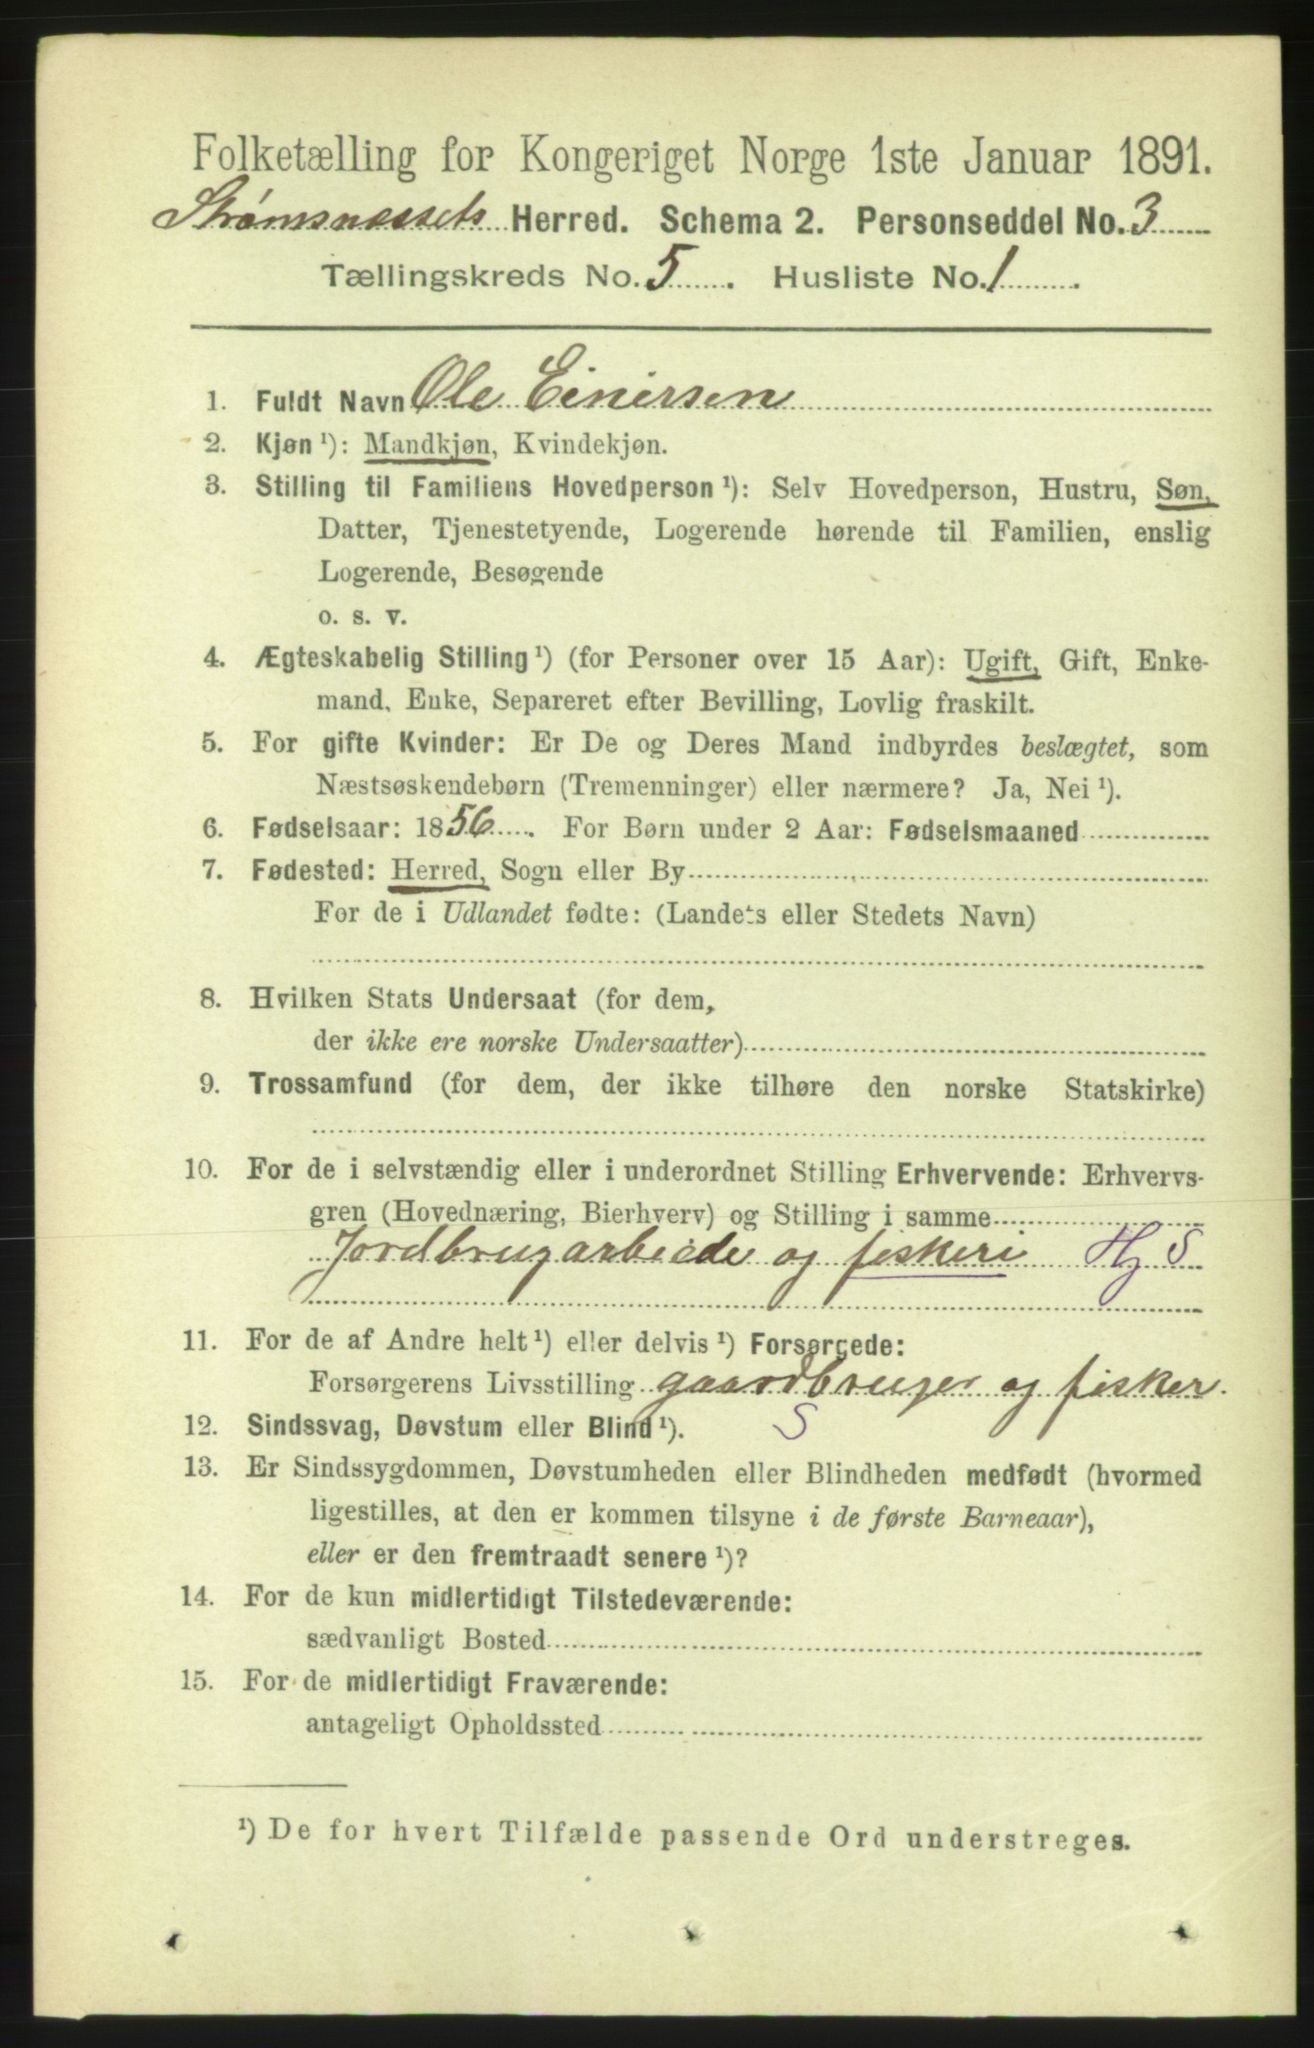 Folketælling for Kongeriget Norge 1ste Januar 1891.
Strømsnæssets Herred. Schema 2. Personseddel No. 3
Tællingskreds No. 5. Husliste No. 1.
1. Fuldt Navn Ole Einersen
2. Kjøn¹): Mandkjøn, Kvindekjøn.
3. Stilling til Familiens Hovedperson¹): Selv Hovedperson, Hustru, Søn,
Datter, Tjenestetyende, Logerende hørende til Familien, enslig
Logerende, Besøgende
o. s. v.
4. Ægteskabelig Stilling¹) (for Personer over 15 Aar): Ugift, Gift, Enke-
mand, Enke, Separeret efter Bevilling, Lovlig fraskilt.
5. For gifte Kvinder: Er De og Deres Mand indbyrdes beslægtet, som
Næstsøskendebørn (Tremenninger) eller nærmere? Ja, Nei¹).
6. Fødselsaar: 1856. For Børn under 2 Aar: Fødselsmaaned
7. Fødested: Herred, Sogn eller By
For de i Udlandet fødte: (Landets eller Stedets Navn)
8. Hvilken Stats Undersaat (for dem,
der ikke ere norske Undersaatter)
9. Trossamfund (for dem, der ikke tilhøre den norske Statskirke)
10. For de i selvstændig eller i underordnet Stilling Erhvervende: Erhvervs-
gren (Hovednæring, Bierhverv) og Stilling i samme
Jordbrugarbeide og fiskeri Hj S
11. For de af Andre helt¹) eller delvis¹) Forsørgede:
Forsørgerens Livsstilling gaardbruger og fisker.
12. Sindssvag, Døvstum eller Blind¹). S
13. Er Sindssygdommen, Døvstumheden eller Blindheden medfødt (hvormed
ligestilles, at den er kommen tilsyne i de første Barneaar),
eller er den fremtraadt senere¹)?
14. For de kun midlertidigt Tilstedeværende:
sædvanligt Bosted
15. For de midlertidigt Fraværende:
antageligt Opholdssted
¹) De for hvert Tilfælde passende Ord understreges.